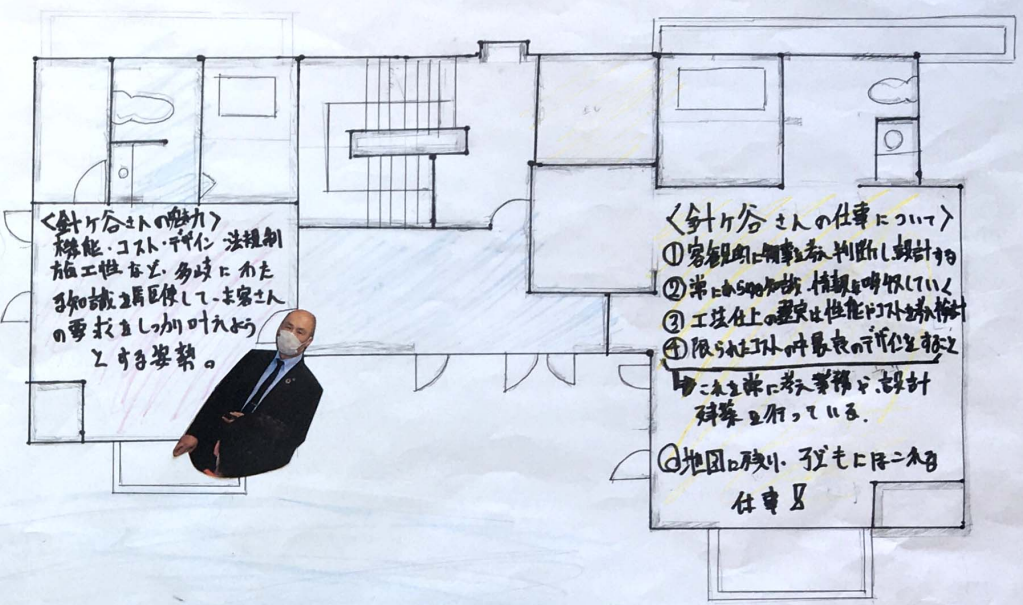 〈針ヶ谷さんの魅力〉
機能・コスト・デザイン 法規制
施工性など、多岐にわた
る知識を駆使して、お客さん
の要求をしっかり叶えよう
とする姿勢。
〈針ヶ谷さんの仕事について〉
① 客観的に物事を考え判断し設計する
② 常にあらゆる知識、情報を吸収していく
③ 工法仕上の選定は性能やコストを考え検討
④ 限られたコストの中最良のデザインをすること
↳これを常に考え業務や、設計
建築を行っている。
◎地図に残り、子どもにほこれる
仕事!!